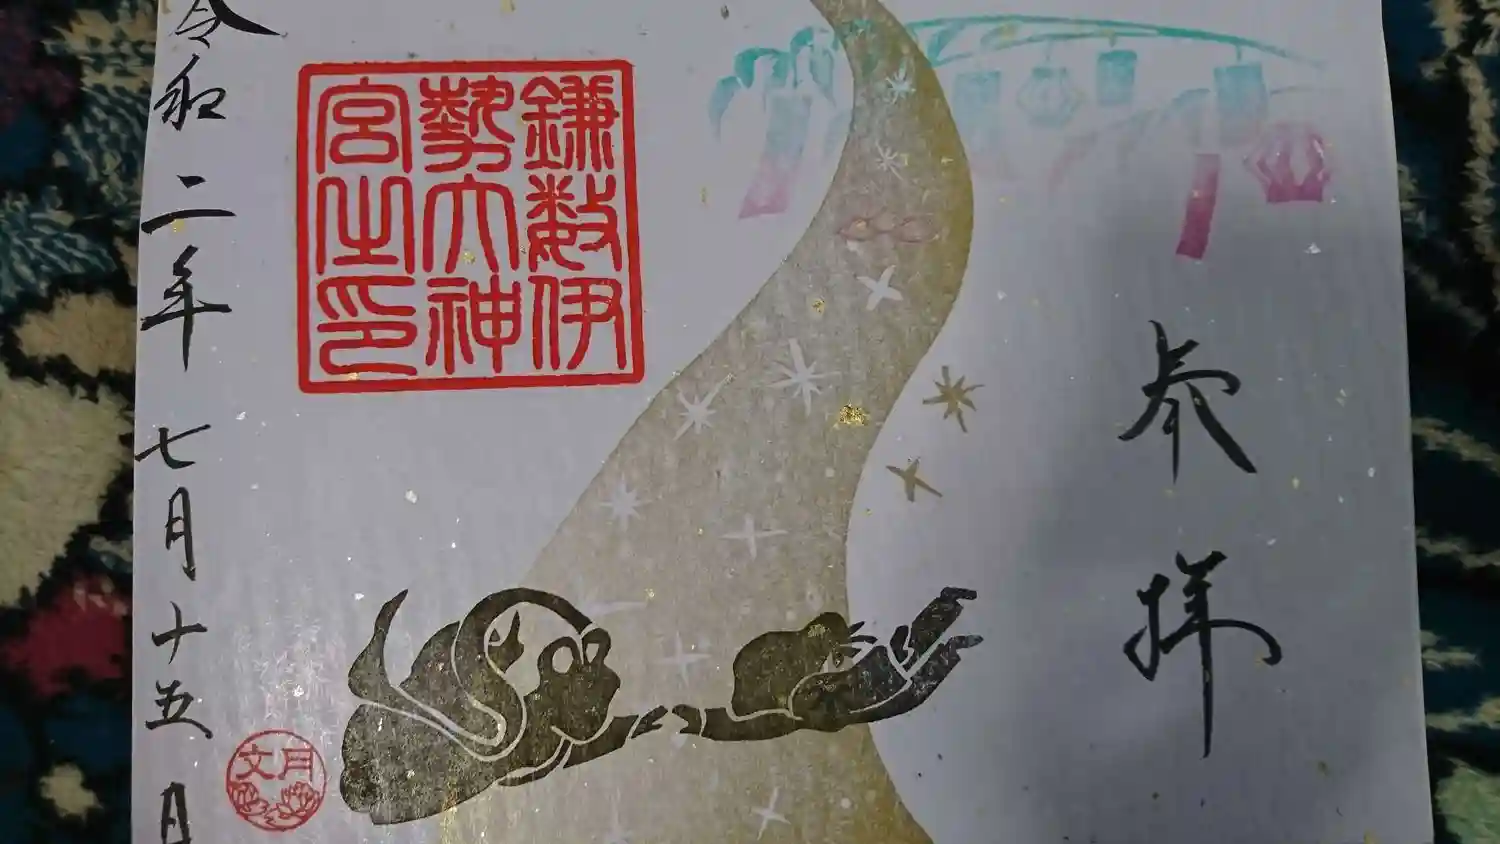 参拝
鎌数伊
勢大神
宮之印
令和二年七月十五日
文月